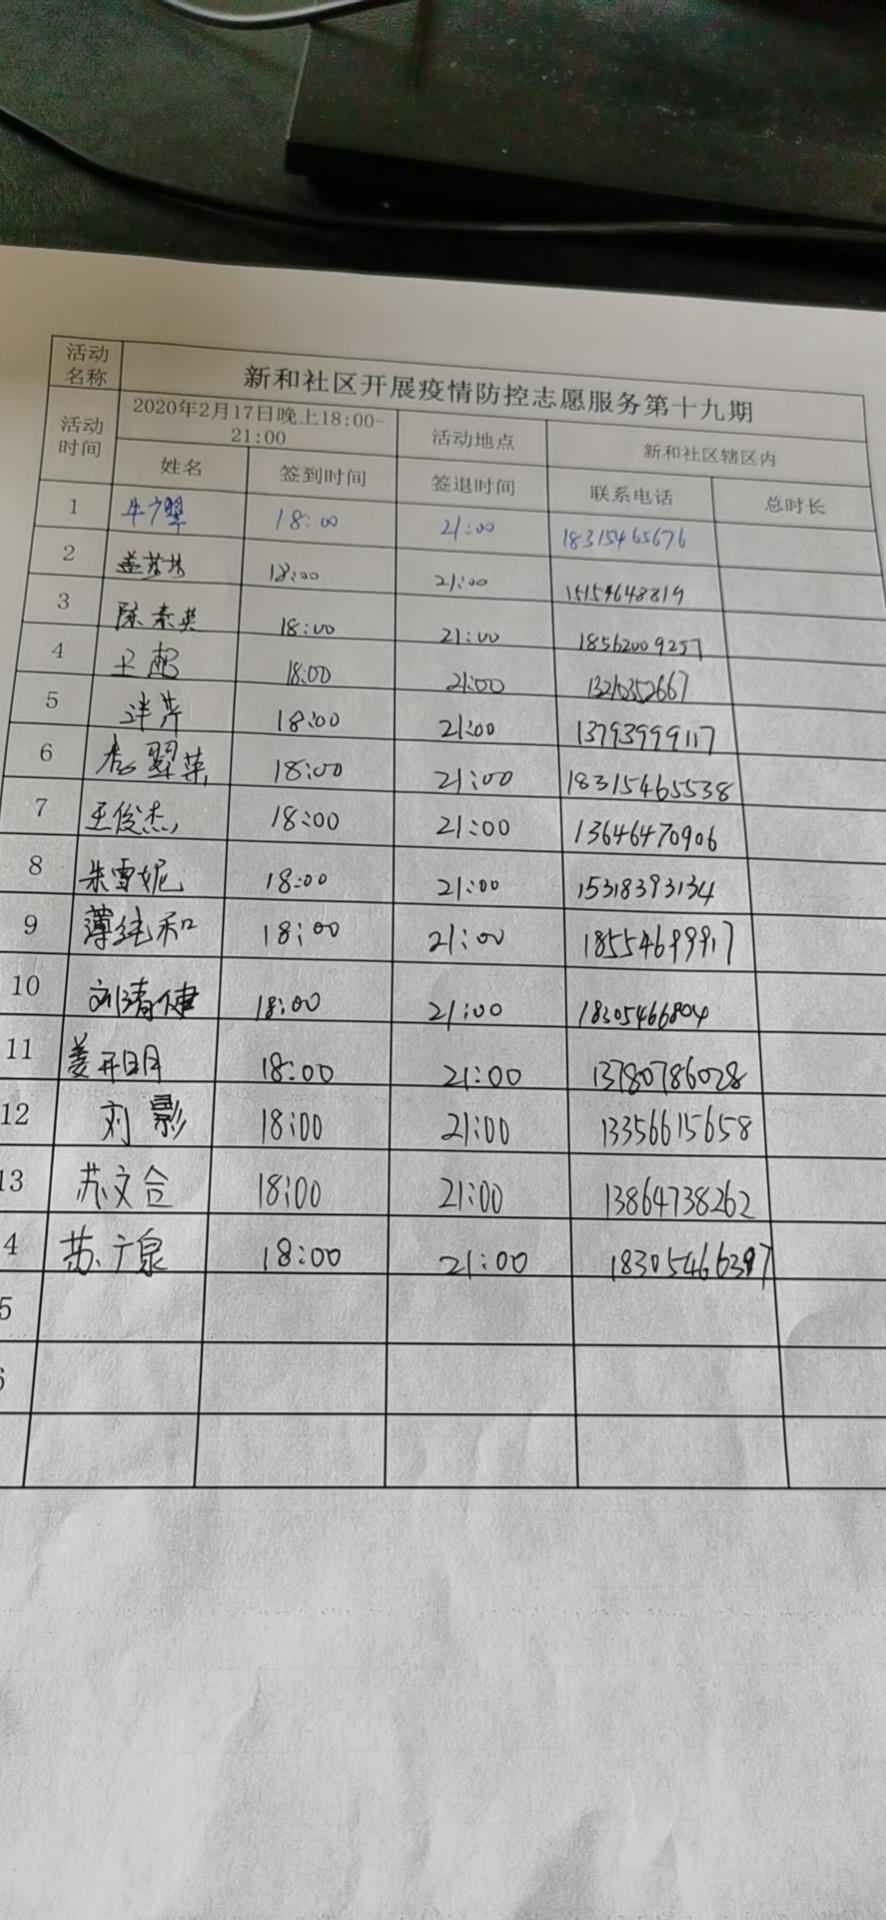 活动名称 新和社区开展疫情防控志愿服务第十九期
活动时间 2020年2月17日晚上18:00-21:00 活动地点 新和社区辖区内
姓名 签到时间 签退时间 联系电话 总时长
1 牛广翠 18:00 21:00 18315465676
2 18:00 21:00 15154648819
3 陈素英 18:00 21:00 18562009257
4 王超 18:00 21:00 13210352667
5 洋芹 18:00 21:00 13793999117
6 翠英 18:00 21:00 18315465538
7 王俊杰 18:00 21:00 13646470906
8 朱雪妮 18:00 21:00 15318393134
9 薄纯和 18:00 21:00 18554699917
10 刘清健 18:00 21:00 18305466804
11 姜开明 18:00 21:00 13780786028
12 刘影 18:00 21:00 13356615658
13 苏文合 18:00 21:00 13864738262
4 苏广泉 18:00 21:00 18305466397
5